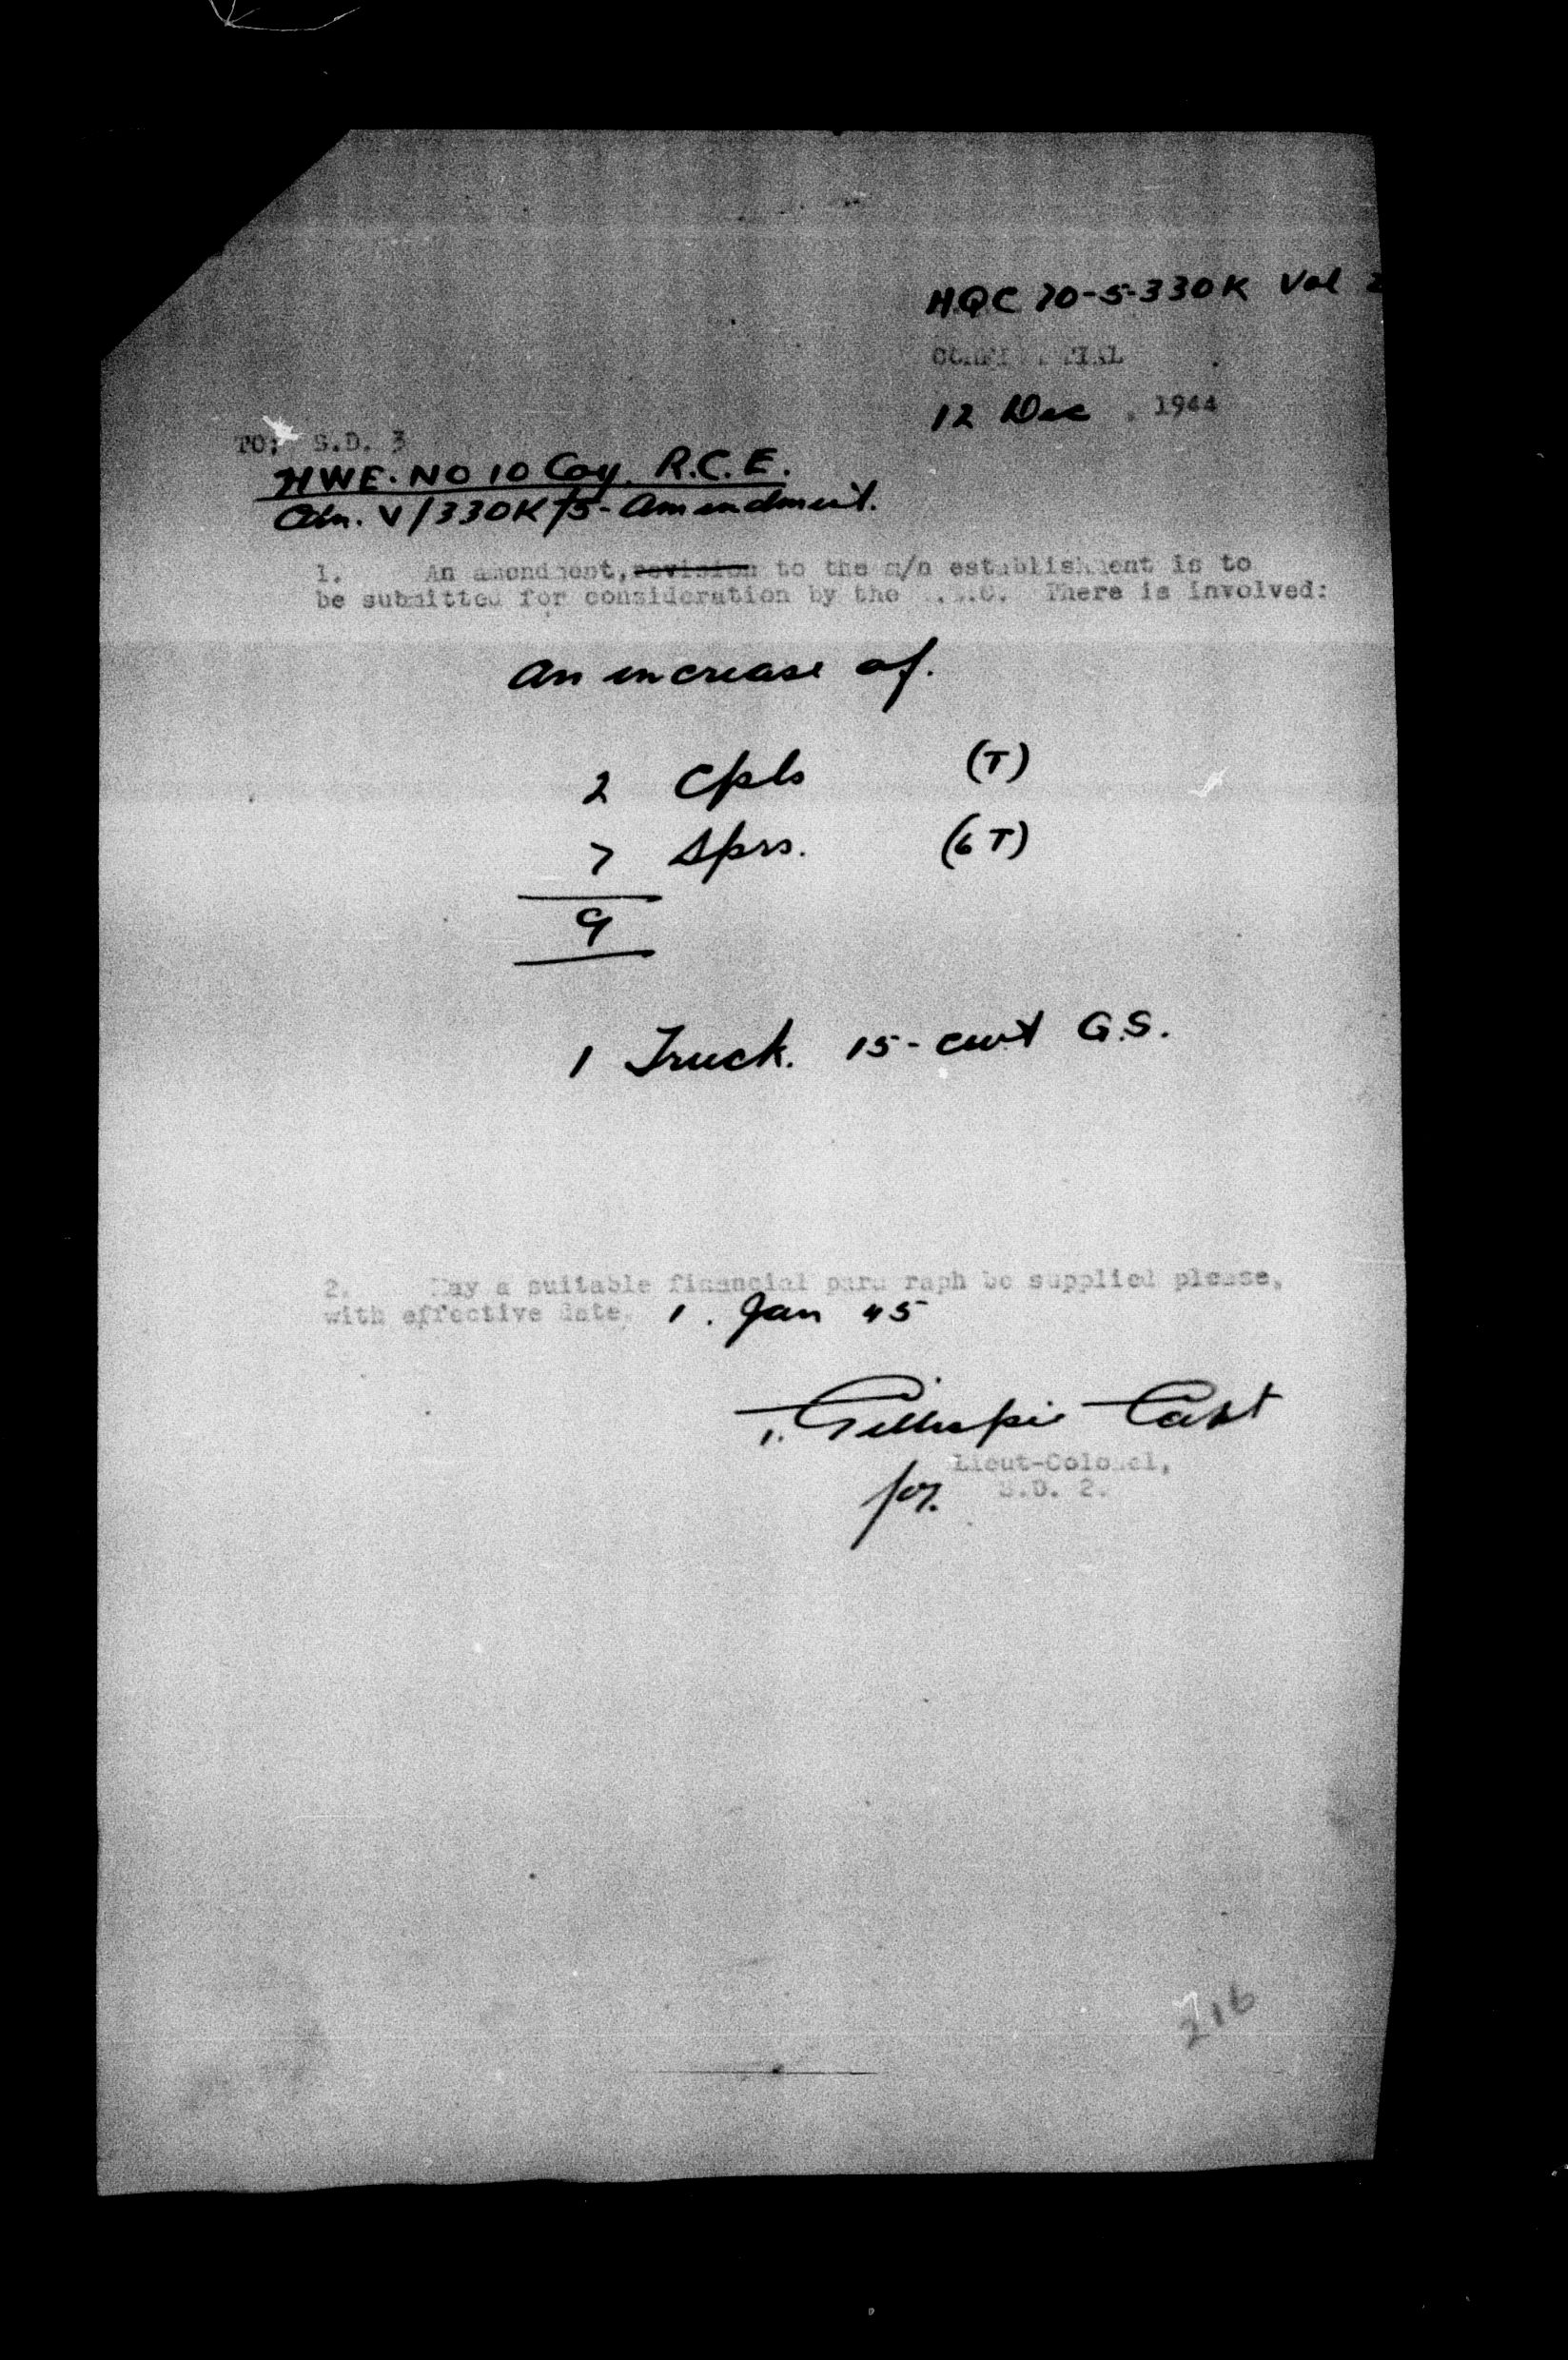 H.Q.C 70-5-330K Vol 2
CONFIDENTIAL
12 Dec , 1944
TO: S.D. 3
HWE. NO 10 Coy. R.C.E.
V/330K/5- Amendment.
1. An amendment, revision to the m/n establishment is to
be submitted for consideration by the .C. There is involved:
An increase of.
2 Cpls (T)
7 Sprs. (6 T)
9
1 Truck. 15-cwt G.S.
2. May a suitable financial paragraph be supplied please,
with effective date. 1. Jan 45
Gillespie Capt
Lieut-Colonel,
for S.D. 2.
216